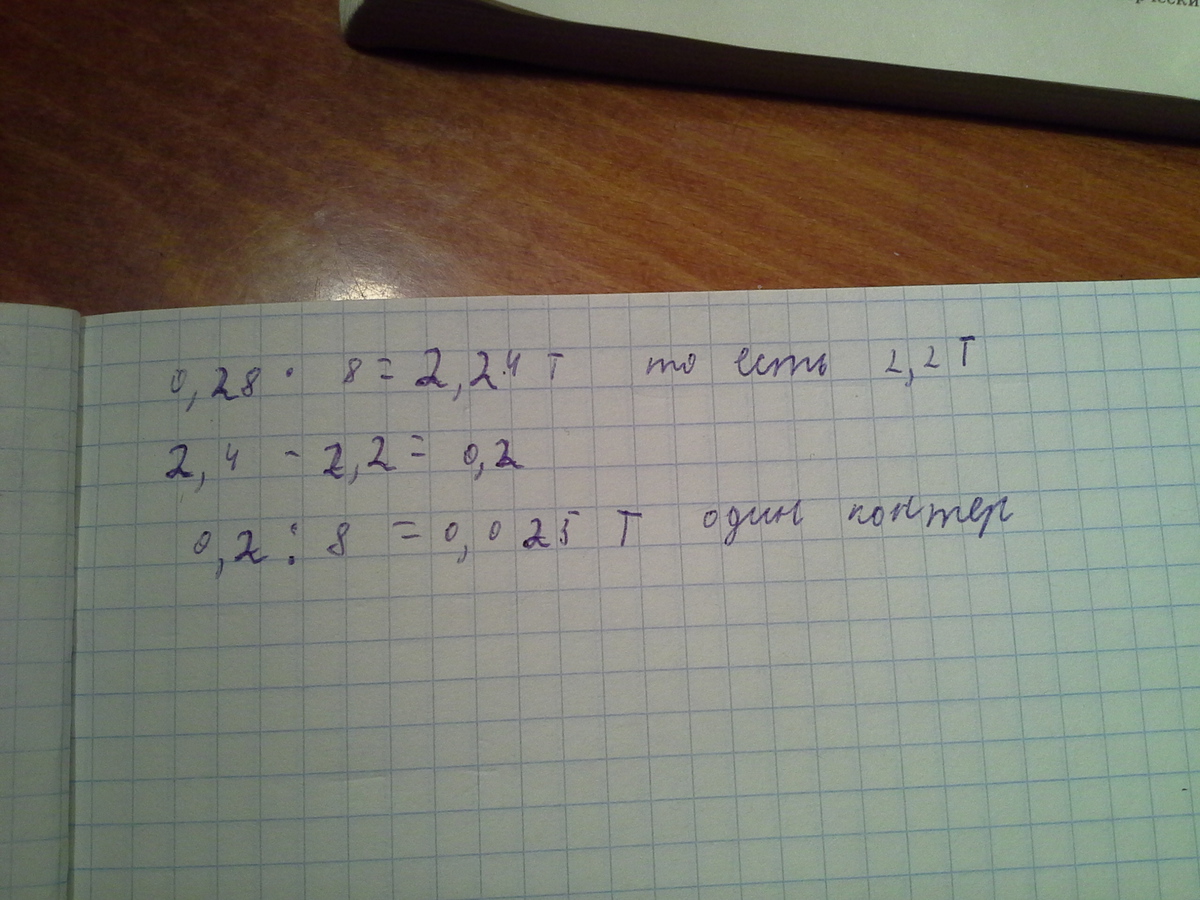 0,28 · 8 = 2,24 т то есть 2,2 т
2,4 - 2,2 = 0,2
0,2 : 8 = 0,025 т один контер